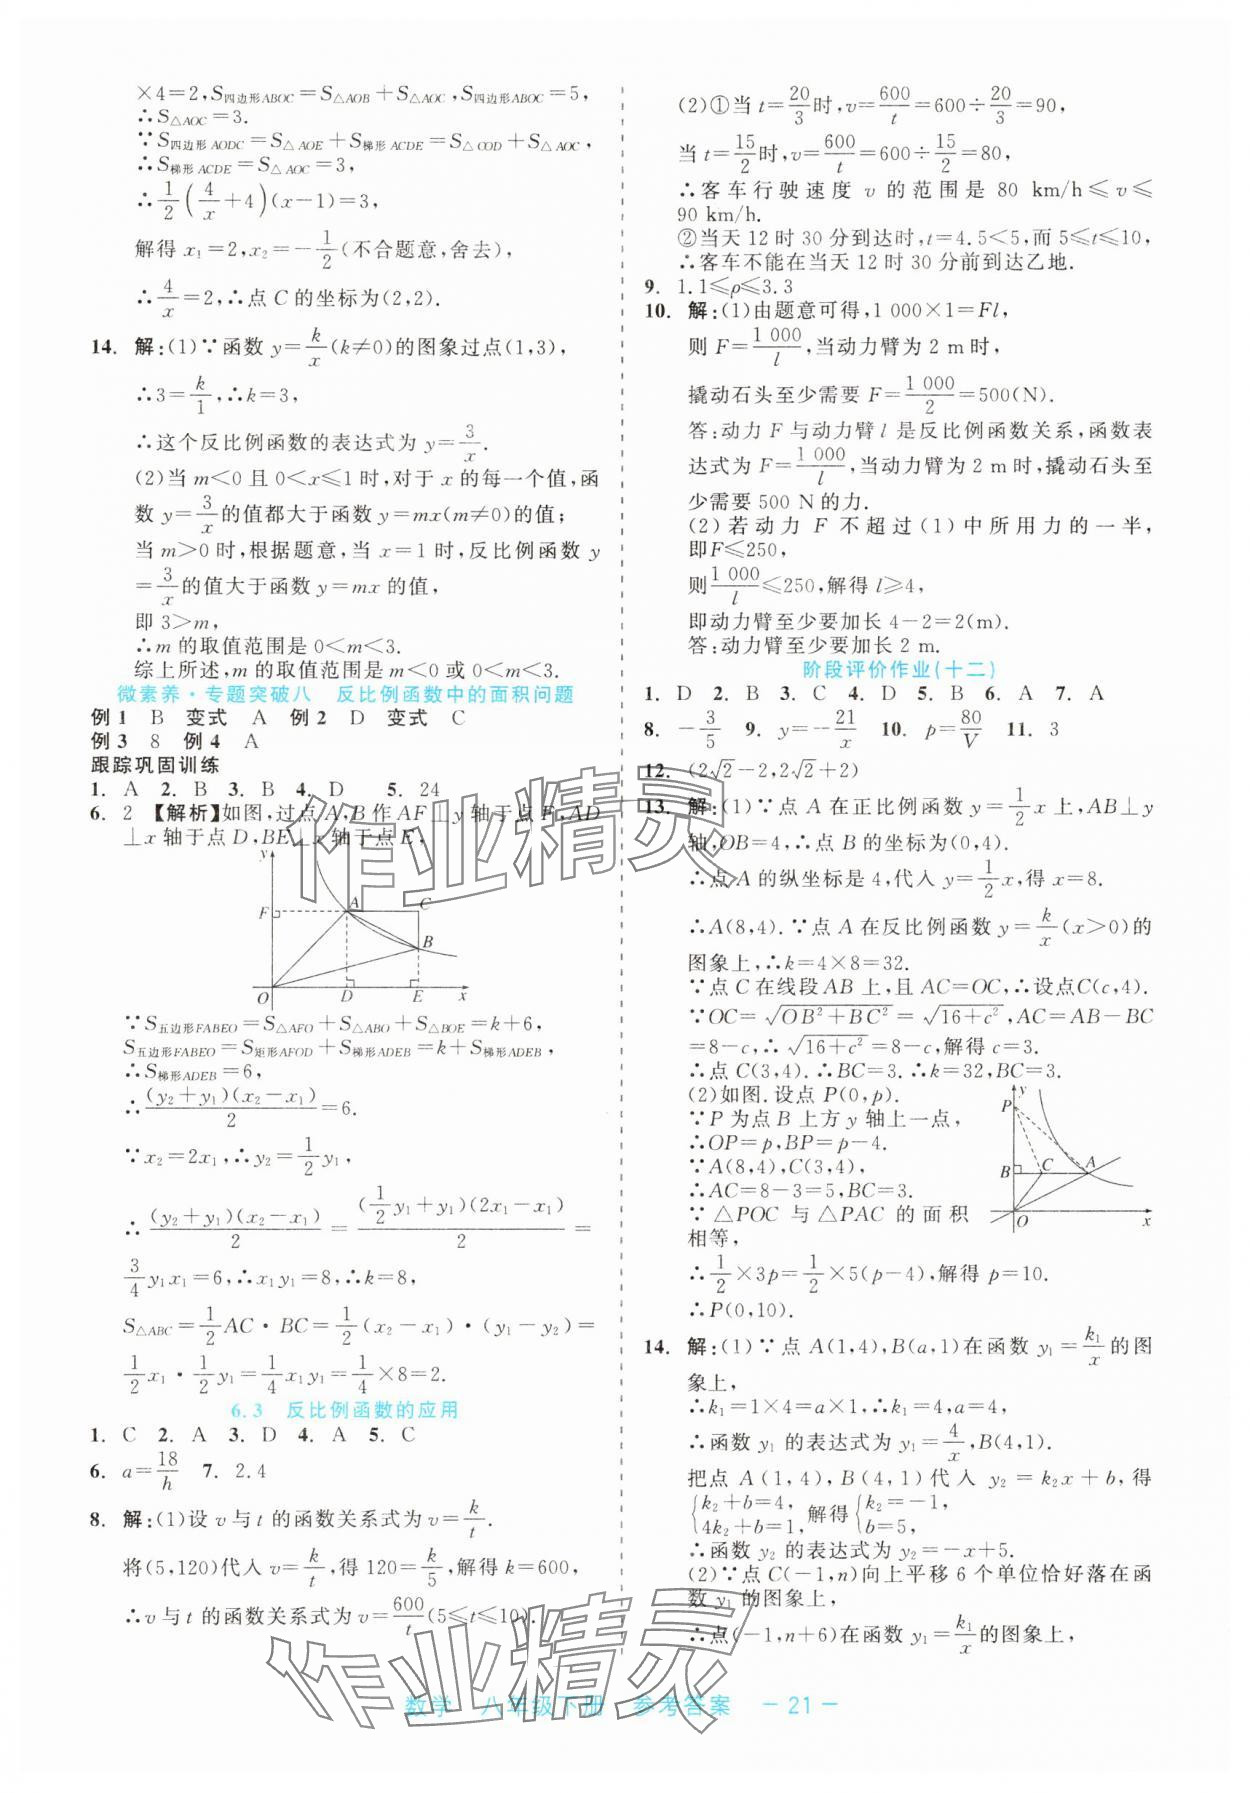 ×4=2,S四边形ABOC=S△AOB+S△AOC,S四边形ABOC=5,
∴S△AOC=3.
∵S四边形AODC=S△AOE+S梯形ACDE=S△COD+S△AOC,
∴S梯形ACDE=S△AOC=3,
∴1/2(4/x+4)(x-1)=3,
解得 x₁=2,x₂=-1/2(不合题意,舍去),
∴4/x=2,∴点 C 的坐标为(2,2).
14. 解:(1)∵函数 y=k/x(k≠0)的图象过点(1,3),
∴3=k/1,∴k=3,
∴这个反比例函数的表达式为 y=3/x.
(2)当 m<0 且 0<x≤1 时,对于 x 的每一个值,函
数 y=3/x的值都大于函数 y=mx(m≠0)的值;
当 m>0 时,根据题意,当 x=1 时,反比例函数 y
=3/x的值大于函数 y=mx 的值,
即 3>m,
∴m 的取值范围是 0<m<3.
综上所述,m 的取值范围是 m<0 或 0<m<3.
微素养·专题突破八 反比例函数中的面积问题
例 1 B 变式 A 例 2 D 变式 C
例 3 8 例 4 A
跟踪巩固训练
1. A 2. B 3. B 4. D 5. 24
6. 2 【解析】如图,过点 A,B 作 AF⊥y 轴于点 F,AD
⊥x 轴于点 D,BE⊥x 轴于点 E,
y
F A C
B
O D E x
∵S五边形FABEO=S△AFO+S△ABO+S△BOE=k+6,
S五边形FABEO=S矩形AFOD+S梯形ADEB=k+S梯形ADEB,
∴S梯形ADEB=6,
∴(y₂+y₁)(x₂-x₁)/2=6.
∵x₂=2x₁,∴y₂=1/2y₁,
∴(y₂+y₁)(x₂-x₁)/2=(1/2y₁+y₁)(2x₁-x₁)/2=
3/4y₁x₁=6,∴x₁y₁=8,∴k=8,
S△ABC=1/2AC·BC=1/2(x₂-x₁)·(y₁-y₂)=
1/2x₁·1/2y₁=1/4x₁y₁=1/4×8=2.
6.3 反比例函数的应用
1. C 2. A 3. D 4. A 5. C
6. a=18/h 7. 2.4
8. 解:(1)设 v 与 t 的函数关系式为 v=k/t.
将(5,120)代入 v=k/t,得 120=k/5,解得 k=600,
∴v 与 t 的函数关系式为 v=600/t(5≤t≤10).
(2)①当 t=20/3时,v=600/t=600÷20/3=90,
当 t=15/2时,v=600/t=600÷15/2=80,
∴客车行驶速度 v 的范围是 80 km/h≤v≤
90 km/h.
②当天 12 时 30 分到达时,t=4.5<5,而 5≤t≤10,
∴客车不能在当天 12 时 30 分前到达乙地.
9. 1.1≤ρ≤3.3
10. 解:(1)由题意可得,1 000×1=Fl,
则 F=1 000/l,当动力臂为 2 m 时,
撬动石头至少需要 F=1 000/2=500(N).
答:动力 F 与动力臂 l 是反比例函数关系,函数表
达式为 F=1 000/l,当动力臂为 2 m 时,撬动石头至
少需要 500 N 的力.
(2)若动力 F 不超过(1)中所用力的一半,
即F≤250,
则1 000/l≤250,解得 l≥4,
即动力臂至少要加长 4-2=2(m).
答:动力臂至少要加长 2 m.
阶段评价作业(十二)
1. D 2. B 3. C 4. D 5. B 6. A 7. A
8. -3/5 9. y=-21/x 10. p=80/V 11. 3
12. (2√2-2,2√2+2)
13. 解:(1)∵点 A 在正比例函数 y=1/2x 上,AB⊥y
轴,OB=4,∴点 B 的坐标为(0,4).
∴点 A 的纵坐标是 4,代入 y=1/2x,得 x=8.
∴A(8,4).∵点 A 在反比例函数 y=k/x(x>0)的
图象上,∴k=4×8=32.
∵点 C 在线段 AB 上,且 AC=OC,∴设点C(c,4).
∵OC=√(OB²+BC²)=√(16+c²),AC=AB-BC
=8-c,∴√(16+c²)=8-c,解得 c=3.
∴点 C(3,4).∴BC=3.∴k=32,BC=3.
(2)如图.设点 P(0,p).
∵P 为点 B 上方 y 轴上一点,
∴OP=p,BP=p-4.
∵A(8,4),C(3,4),
∴AC=8-3=5,BC=3.
∵△POC 与△PAC 的面积
相等,
y
P
B C A
O x
∴1/2×3p=1/2×5(p-4),解得 p=10.
∴P(0,10).
14. 解:(1)∵点 A(1,4),B(a,1)在函数 y₁=k₁/x的图
象上,
∴k₁=1×4=a×1,∴k₁=4,a=4,
∴函数 y₁ 的表达式为 y₁=4/x,B(4,1).
把点 A(1,4),B(4,1)代入 y₂=k₂x+b,得
{k₂+b=4, 4k₂+b=1, 解得{k₂=-1, b=5,
∴函数 y₂ 的表达式为 y₂=-x+5.
(2)∵点 C(-1,n)向上平移 6 个单位恰好落在函
数 y₁ 的图象上,
∴点(-1,n+6)在函数 y₁=k₁/x的图象上,
数学 八年级下册 参考答案 －21－
作业精灵
作业精灵